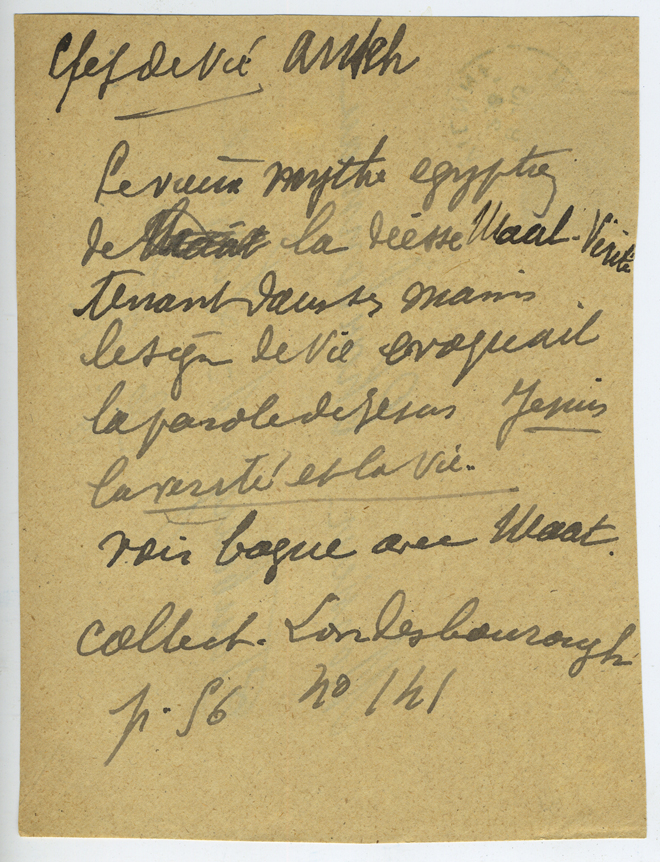 Clef de Vie Ankh
Le vieux mythe egyptien
de la déesse Maat-Vérité
tenant dans ses mains
le signe de vie evoquait
la parole de Jesus Je suis
la verité et la vie.
voir bague avec Maat.
collect. Londesbourough
p. 56 no 141